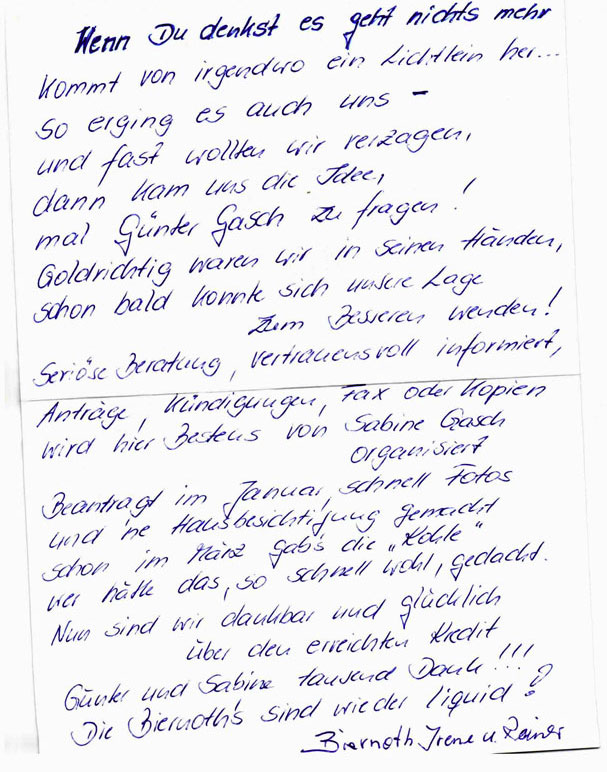 Wenn Du denkst es geht nichts mehr
kommt von irgendwo ein Lichtlein her...
So erging es auch uns –
und fast wollten wir verzagen,
dann kam uns die Idee,
mal Günter Gasch zu fragen!
Goldrichtig waren wir in seinen Händen,
schon bald konnte sich unsere Lage
zum Besseren wenden!
Seriöse Beratung, vertrauensvoll informiert,
Anträge, Kündigungen, Fax oder Kopien
wird hier Bestens von Sabine Gasch
organisiert
Beantragt im Januar, schnell Fotos
und 'ne Hausbesichtigung gemacht
schon im März gab's die „Kohle"
wer hätte das, so schnell wohl, gedacht.
Nun sind wir dankbar und glücklich
über den erreichten Kredit
Günter und Sabine tausend Dank!!!
Die Biernoth's sind wieder liquid?
Biernoth Irene u. Reiner